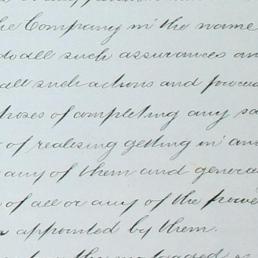 the Company in the name
do all such assurances an
all such actions and proceed
poses of completing any sa
of realising getting in an
any of them and general
of all or any of the power
appointed by them.